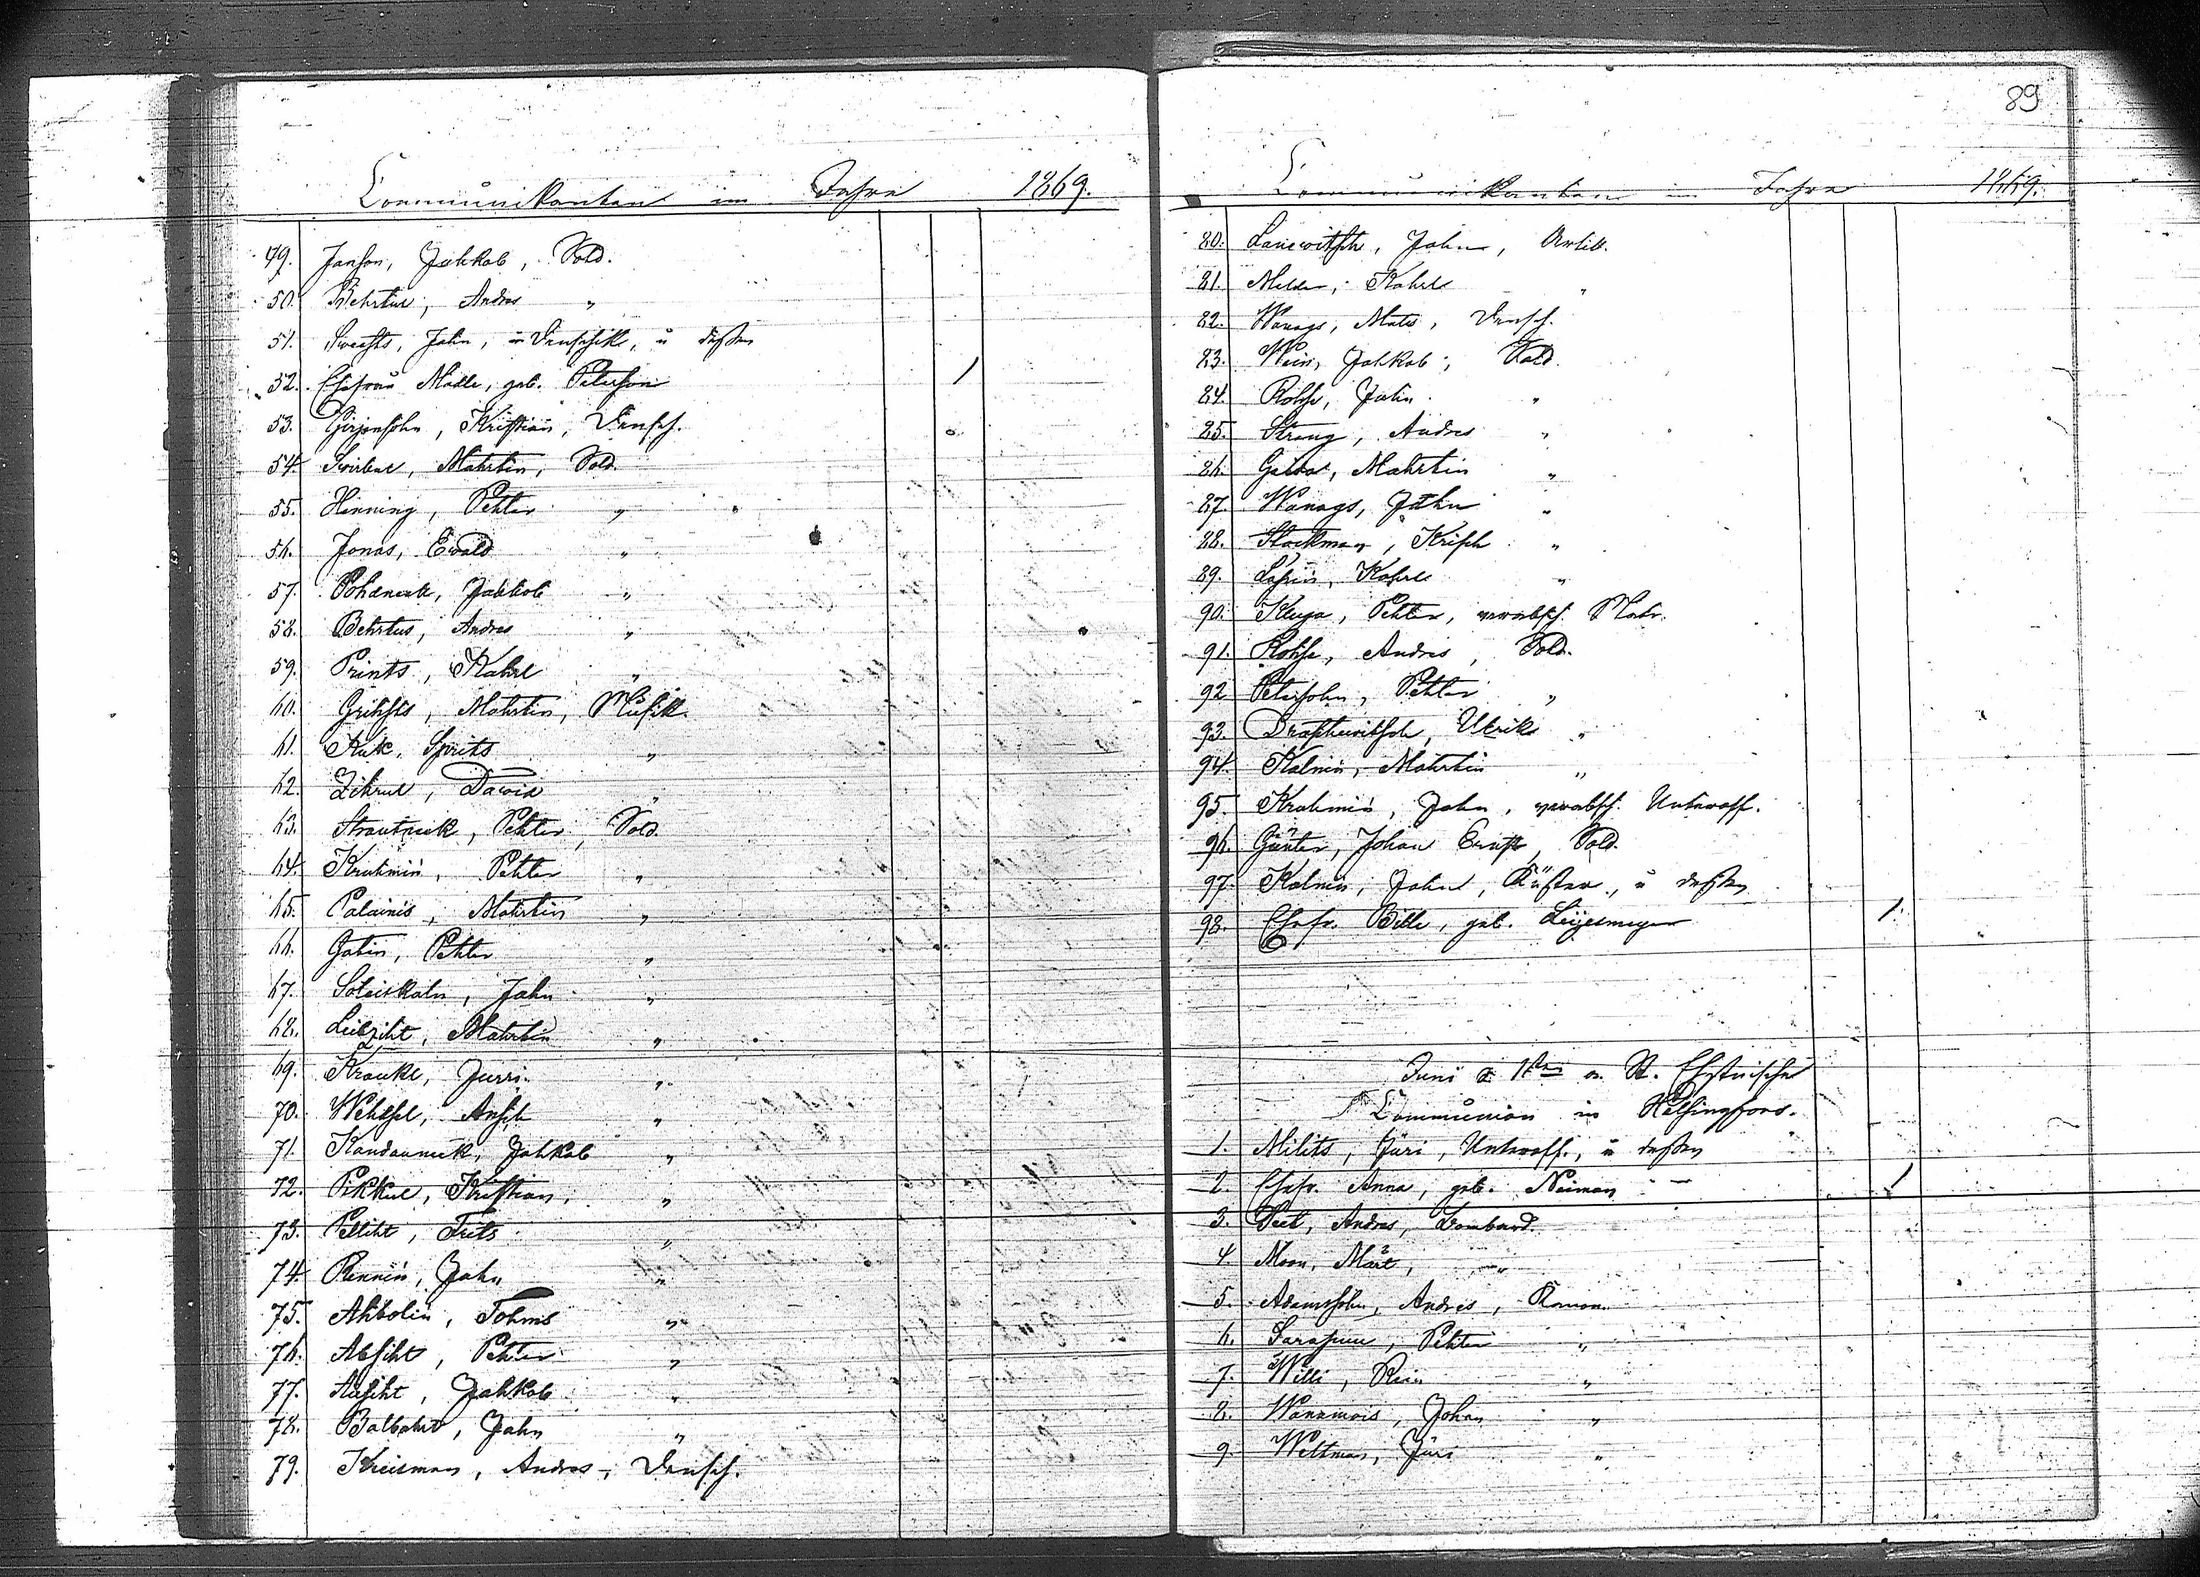 Communikanten im Jahre 1869.
49. Janson, Jahkob, Sold.
50. Behrtul, Andres "
51. Sweests, Jahn, Denschik, u dessen
52. Ehefrau Madle, geb. Peterson 1
53. Girgensohn, Kristian, Densch.
54. Swirbul, Mahrtin, Sold.
55. Henning, Pehter "
56. Jonas, Ewald "
57. Pohdneek, Jahkob "
58. Behrtus, Andres "
59. Prints, Kahrl "
60. Grihsts, Mahrtin, Musik.
61. Auk, Sprits "
62. Zihrul, Dawid "
63. Strautneek, Pehter, Sold.
64. Kruhmin, Pehter "
65. Palainis, Mahrtin "
66. Gatin, Pehter "
67. Soleiskaln, Jahn "
68. Leiksiht, Mahrtin "
69. Kraukl, Jurri "
70. Wehtspel, Ansch "
71. Kandauneek, Jahkob "
72. Pikkul, Kristian "
73. Pelliht, Frits "
74. Rennin, Jahn "
75. Ahbolin, Tohms "
76. Absiht, Pehter "
77. Ansiht, Jahkob "
78. Balbahrd, Jahn "
79. Kreisman, Andres, Densch.
89
Communikanten im Jahre 1869.
80. Lanewitsch, Jahn, Artill.
81. Melder, Kahrl "
82. Wanags, Mats, Densch.
83. Wein, Jahkob, Sold.
84. Rohse, Jahn "
85. Strang, Andres "
86. Gailis, Mahrtin "
87. Wanags, Jahn "
88. Stackman, Krisch "
89. Lapin, Kahrl "
90. Kluga, Pehter, verabsch. Matr.
91. Rohse, Andres, Sold.
92 Petersohn, Pehter "
93. Draschewitsch, Ulrik "
94. Kalnin, Mahrtin "
95. Kruhmin, Jahn, verabsch. Unteroff.
96. Günter, Johan Ernst, Sold.
97. Kalnin, Jahn, Küster, u dessen
98. Ehefr. Bille, geb. 1.
Juni d. 1ten a. St. Ehstnische
Communion in Helsingfors.
1. Milits, Jüri, Unteroff., u dessen
2. Ehefr. Anna, geb. Neiman 1
3. Peet, Andres, Bombard.
4. Moon, Märt, "
5. Adamsohn, Andres, Kanon.
6. Sarapuu, Pehter "
7. Willi, Rein "
8. Wanamois, Johan "
9. Weltman, Jüri "